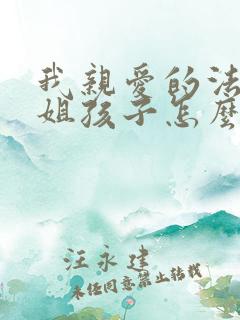 我親愛的法
姐孩子怎麼
汪永建
未经同意禁止转载